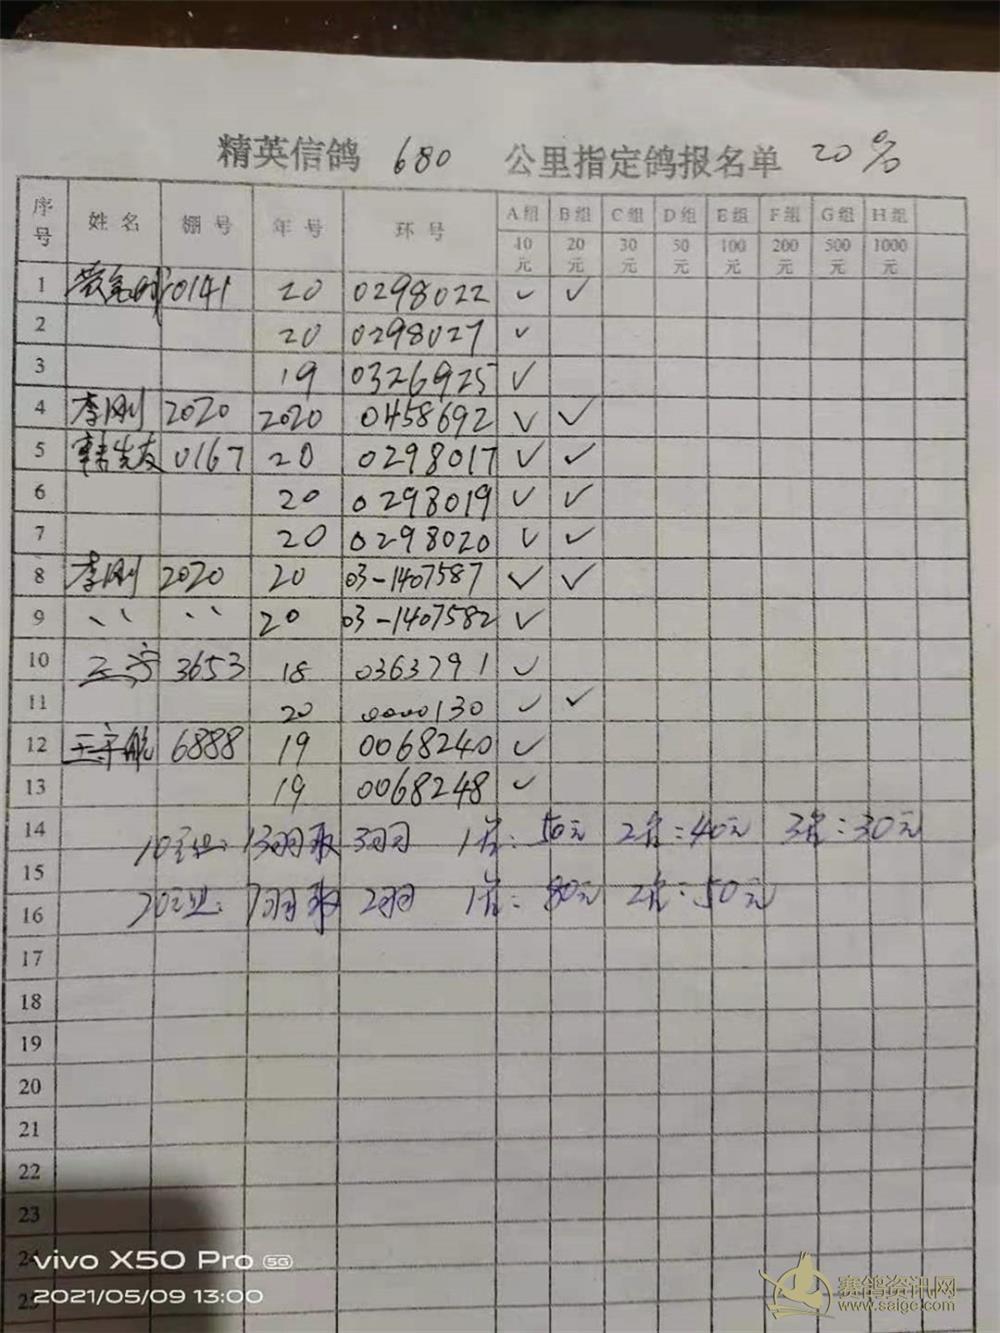 精英信鸽 680 公里指定鸽报名单 20%
序号 姓名 棚号 年号 环号 A组 B组 C组 D组 E组 F组 G组 H组
10元 20元 30元 50元 100元 200元 500元 1000元
1 0141 20 0298022 ✓ ✓
2 20 0298027 ✓
3 19 0326925 ✓
4 李刚 2020 2020 0458692 ✓ ✓
5 韩先友 0167 20 0298017 ✓ ✓
6 20 0298019 ✓ ✓
7 20 0298020 ✓ ✓
8 李刚 2020 20 03-1407587 ✓ ✓
9 〃 〃 20 03-1407582 ✓
10 3653 18 0363791 ✓
11 20 0000130 ✓ ✓
12 王宇航 6888 19 0068240 ✓
13 19 0068248 ✓
14 10元组: 13羽取3羽 1名: 50元 2名: 40元 3名: 30元
15
16 20元组: 7羽取2羽 1名: 80元 2名: 50元
17
18
19
20
21
22
23
24
25
vivo X50 Pro 5G
2021/05/09 13:00
赛鸽资讯网
www.saige.com